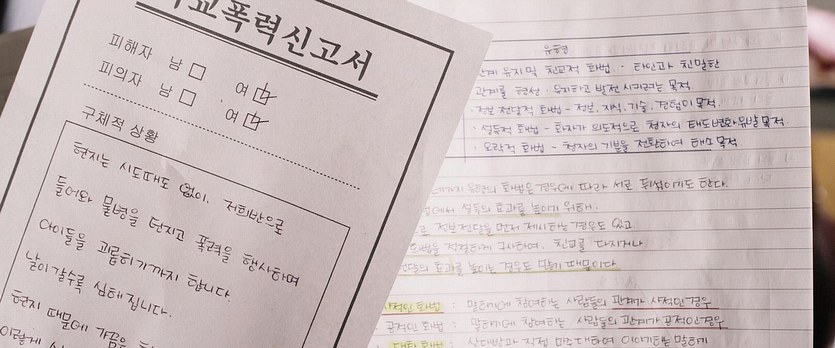 학교폭력신고서
피해자 남 □ 여 ☑
피의자 남 □ 여 ☑
구체적 상황
현지는 시도때도 없이. 저희반으로
들어와 물병을 던지고 폭력을 행사하며
아이들을 괴롭히기까지 합니다.
날이갈수록 심해집니다.
현지 때문에
이렇게
유형
관계 유지 및 친교적 화법 - 타인과 친밀한
관계를 형성·유지하고 발전 시키려는 목적
·정보 전달적 화법 - 정보, 지식, 기술, 전달이 목적.
·설득적 화법 - 화자가 의도적으로 청자의 태도변화 유발 목적.
·오락적 화법 - 청자의 기분을 전환하여 해소 목적
화법은 경우에 따라 서로 뒤섞이기도 한다.
설득의 효과를 높이기 위해.
정보전달을 먼저 제시하는 경우도 있고
화법을 적절하게 구사하여, 친교를 다지거나
효과를 높이는 경우도 많기 때문이다.
사적인 화법 : 말하기에 참여하는 사람들의 관계가 사적인 경우
공적인 화법 : 말하기에 참여하는 사람들의 관계가 공적인 경우
대화 화법 : 상대방과 직접 마주 대하여 이야기를 말하게